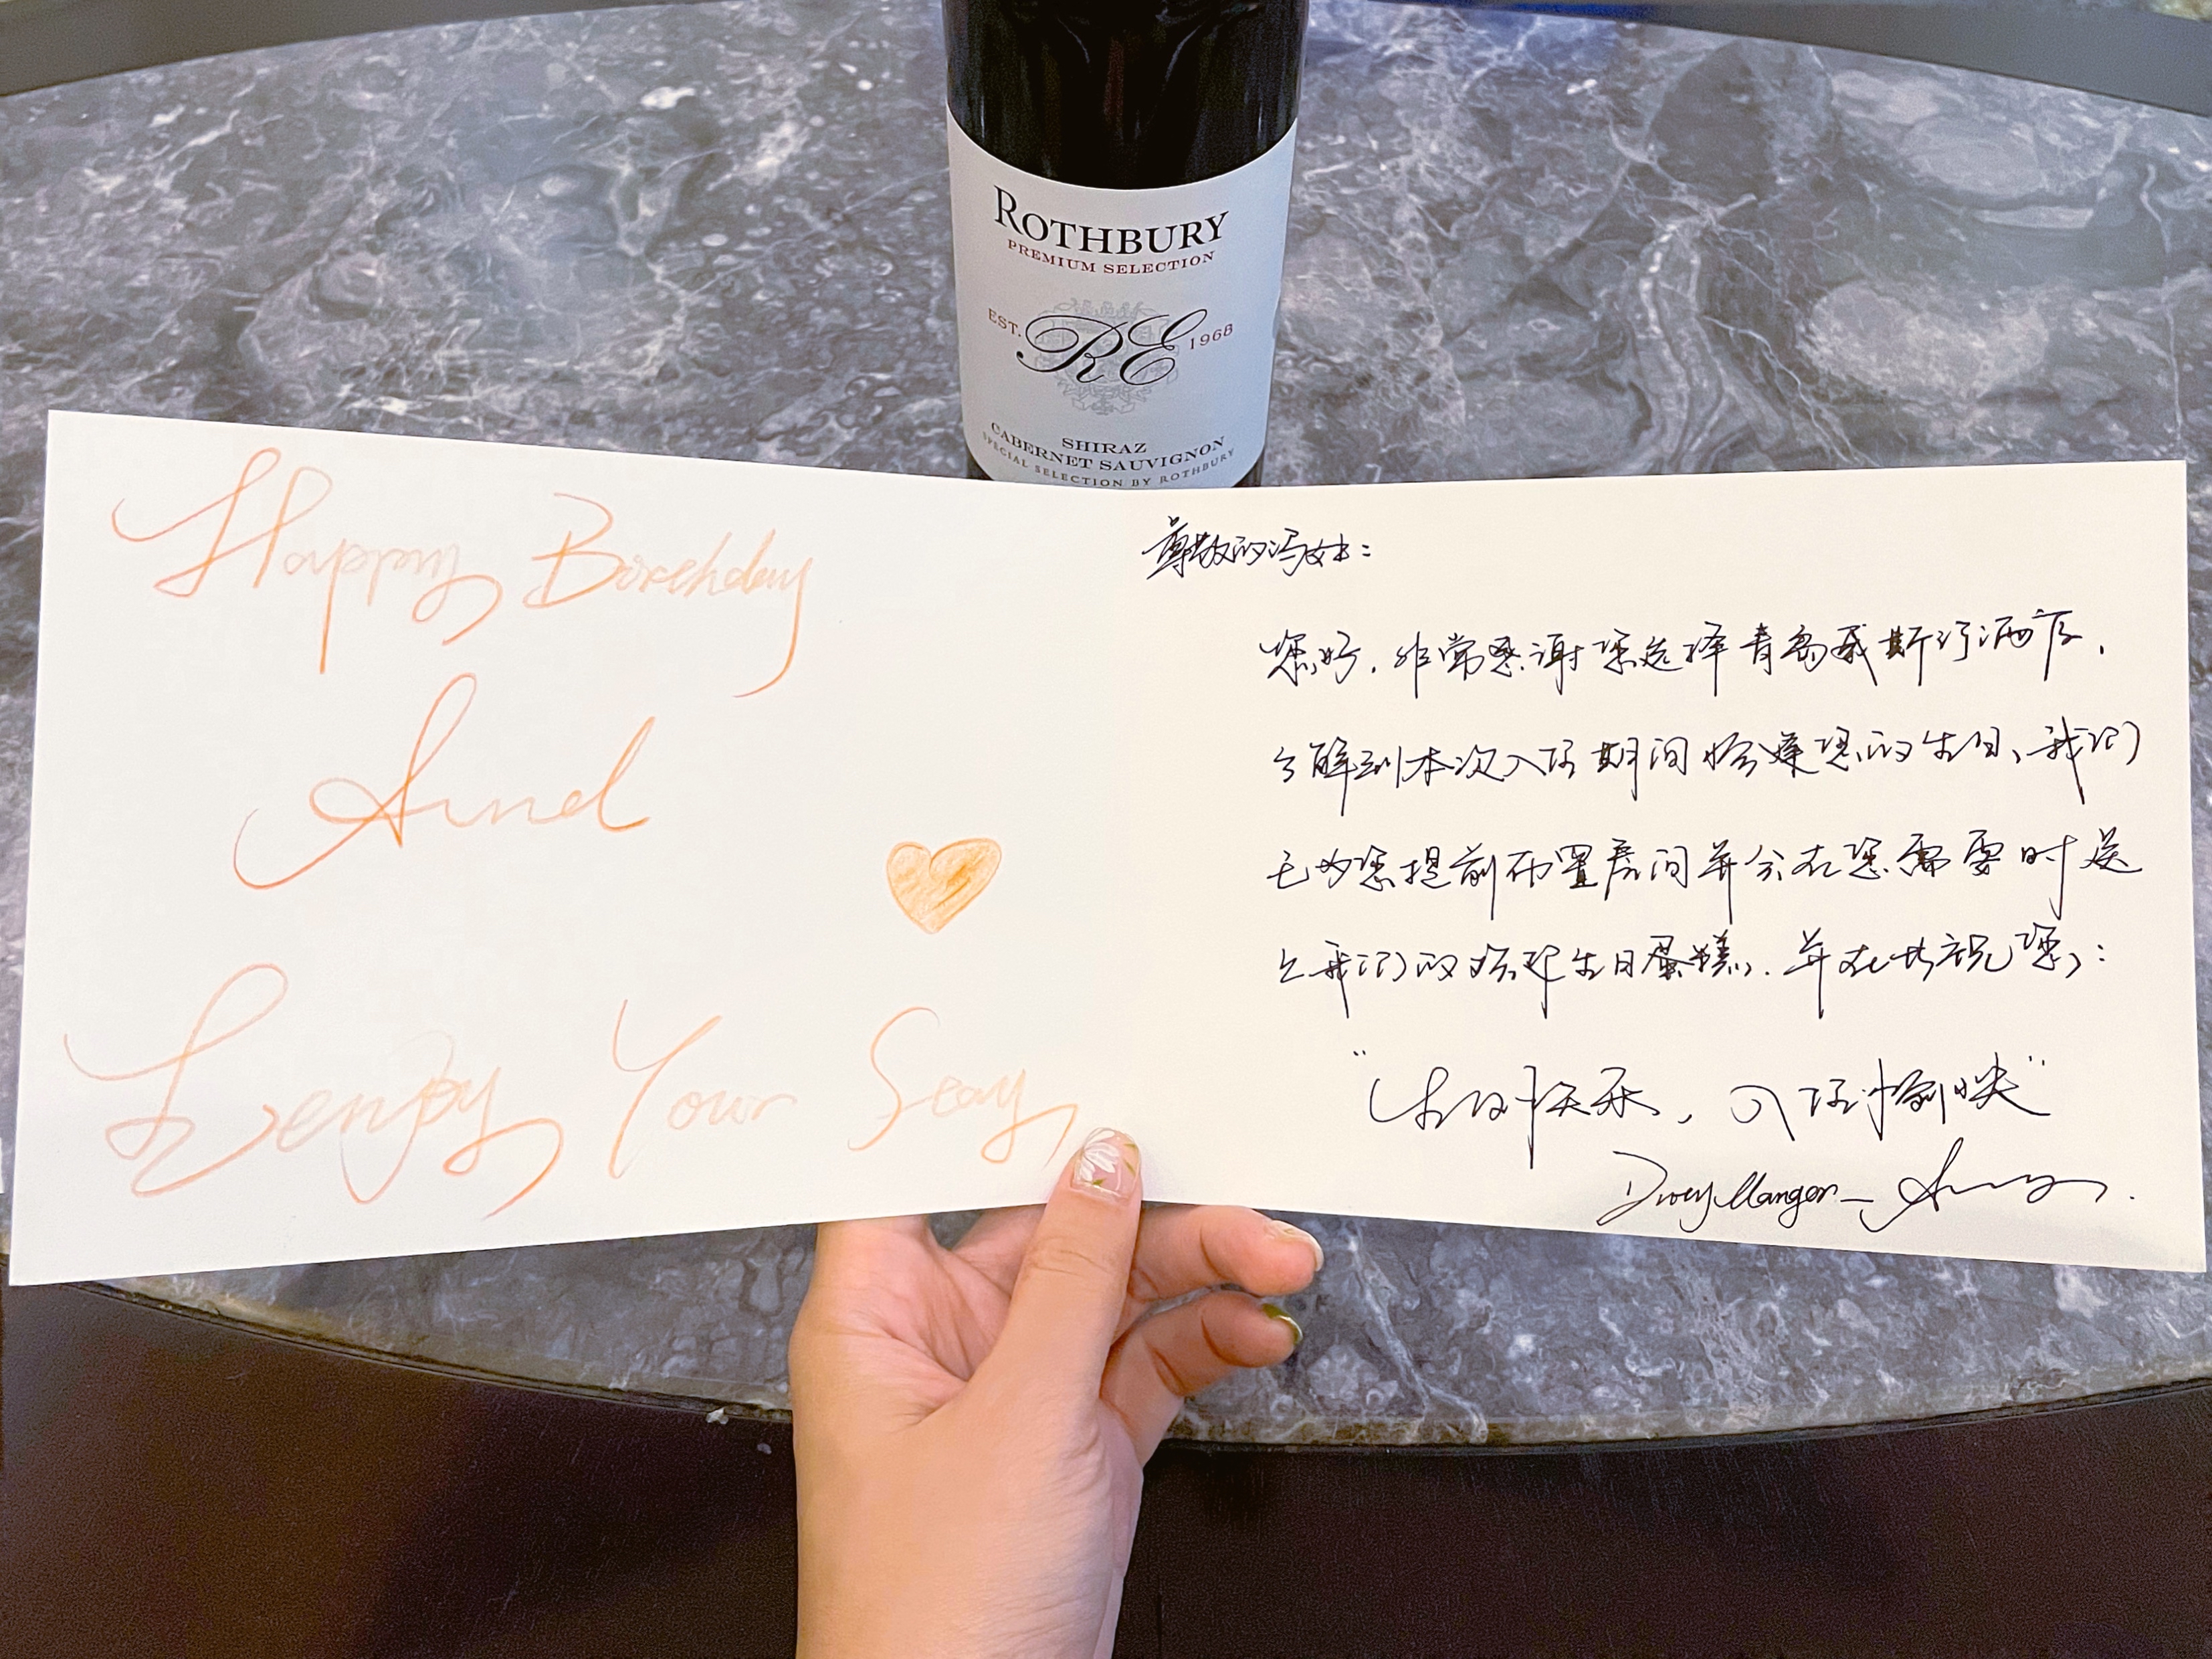 ROTHBURY
PREMIUM SELECTION
EST. RE 1968
SHIRAZ
CABERNET SAUVIGNON
SPECIAL SELECTION BY ROTHBURY
Happy Birthday
And
Enjoy Your Stay
尊敬的冯女士：
您好，非常感谢您选择青岛威斯汀酒店，
了解到本次入住期间恰逢您的生日、我们
已为您提前布置房间并会在您需要时送
上我们的精致生日蛋糕，并在此祝您：
“生日快乐，入住愉快”
Duty Manger—